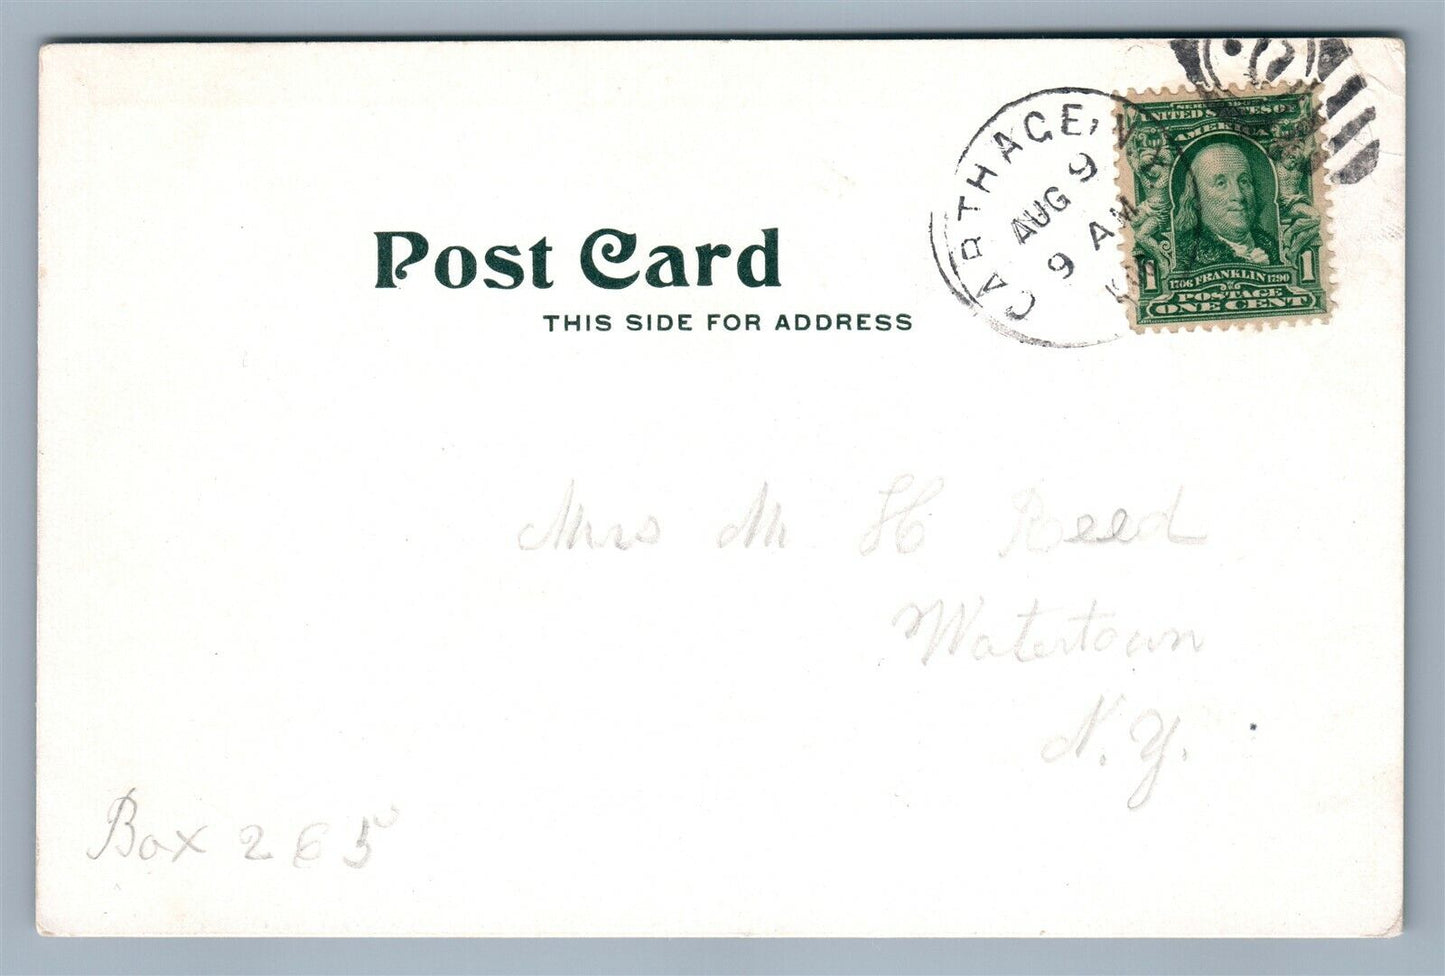 CARTHAGE, N.
AUG 9
9 AM
SERIES 1902
UNITED STATES OF
AMERICA
1 1706 FRANKLIN 1790 1
POSTAGE
ONE CENT
Post Card
THIS SIDE FOR ADDRESS
Mrs M H Reed
Watertown
N.Y.
Box 265